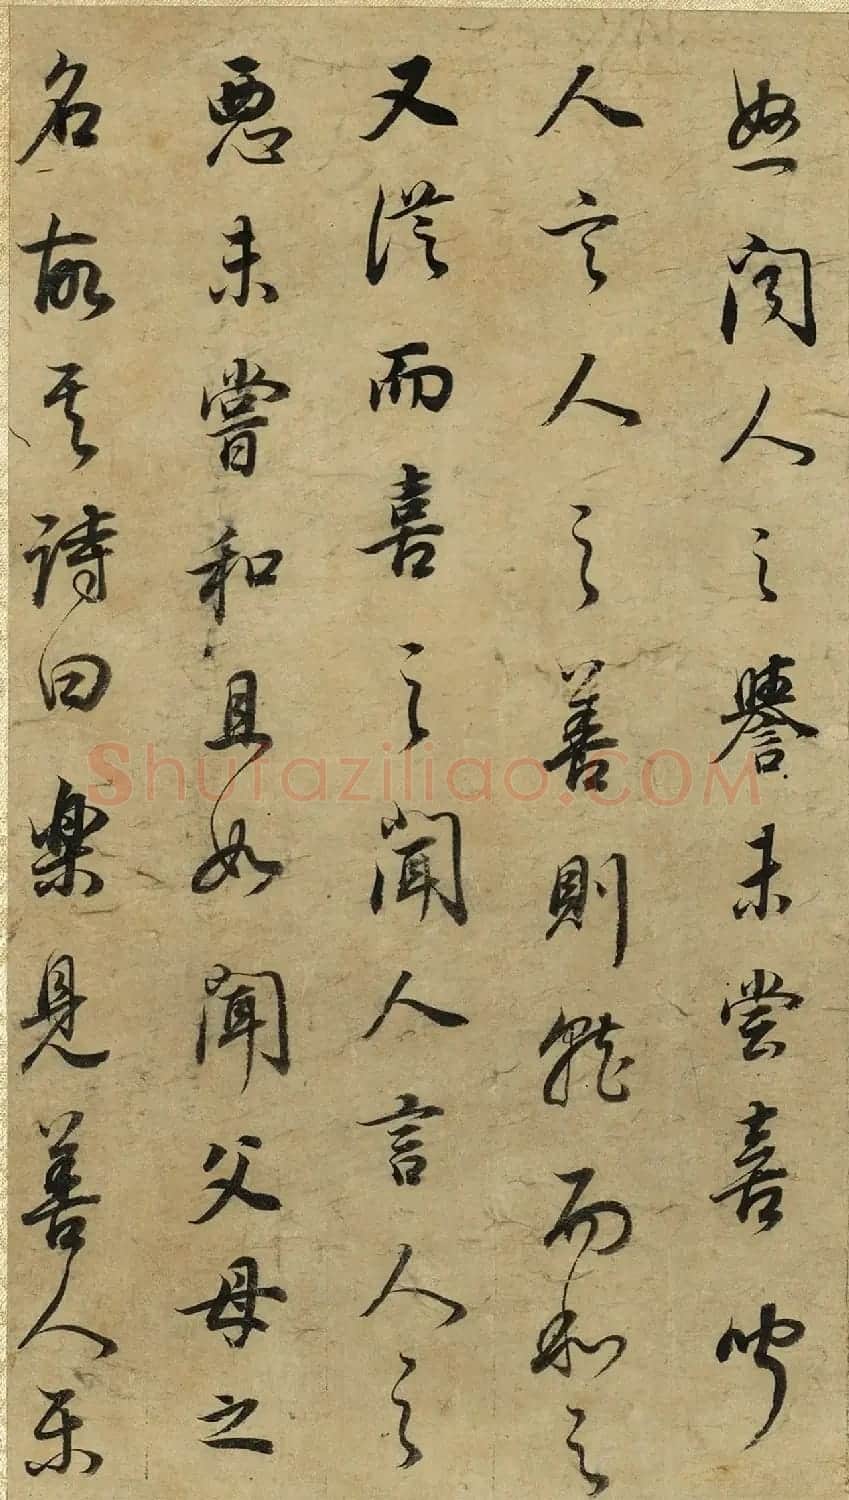 怒聞人之譽未嘗喜聞
人言人之善則就而和之
又從而喜之聞人言人之
惡未嘗和且如聞父母之
名故其詩曰樂見善人樂
Shufaziliao.COM